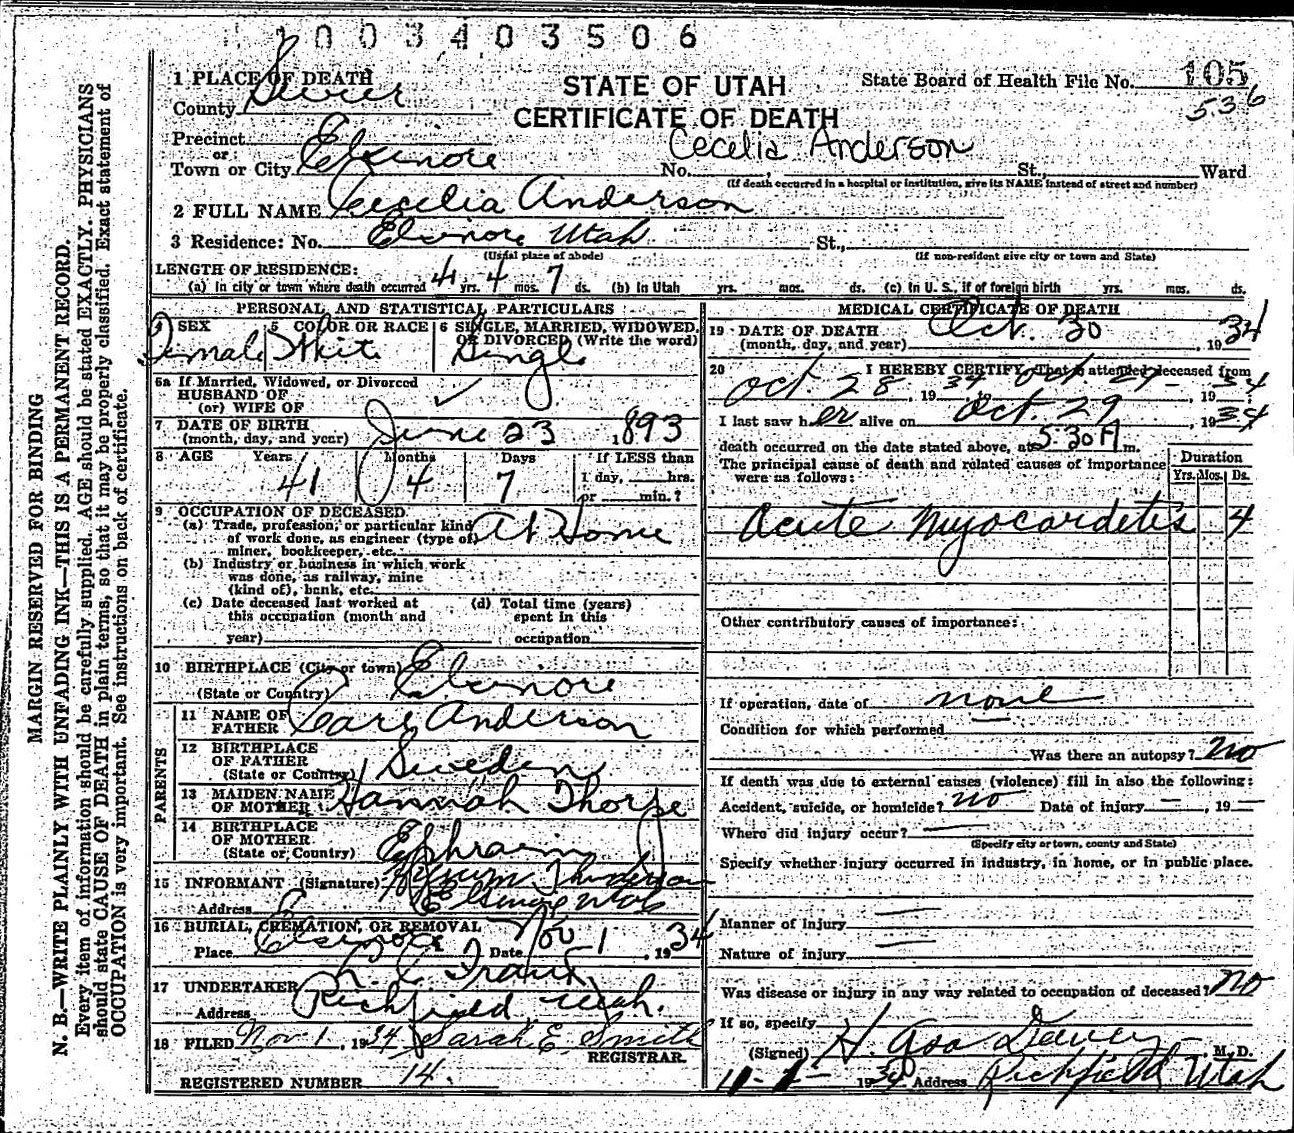 1003403506
1 PLACE OF DEATH
County Sevier
STATE OF UTAH
CERTIFICATE OF DEATH
State Board of Health File No. 105
536
Precinct
or
Town or City Elsinore
Cecelia Anderson
No. , St., Ward
(If death occurred in a hospital or institution, give its NAME instead of street and number)
2 FULL NAME Cecilia Anderson
3 Residence: No. Elsinore Utah St.,
(Usual place of abode) (If non-resident give city or town and State)
LENGTH OF RESIDENCE:
(a) In city or town where death occurred 41 yrs. 4 mos. 7 ds. (b) In Utah yrs. mos. ds. (c) In U. S., if of foreign birth yrs. mos. ds.
PERSONAL AND STATISTICAL PARTICULARS
4 SEX Female
5 COLOR OR RACE White
6 SINGLE, MARRIED, WIDOWED, OR DIVORCED (Write the word) Single
6a If Married, Widowed, or Divorced
HUSBAND OF
(or) WIFE OF
7 DATE OF BIRTH
(month, day, and year) June 23 1893
8 AGE Years Months Days If LESS than
41 4 7 1 day, hrs.
or min.?
9 OCCUPATION OF DECEASED
(a) Trade, profession, or particular kind
of work done, as engineer (type of) At Home
miner, bookkeeper, etc.
(b) Industry or business in which work
was done, as railway, mine
(kind of), bank, etc.
(c) Date deceased last worked at
this occupation (month and
year)
(d) Total time (years)
spent in this
occupation
10 BIRTHPLACE (City or town) Elsinore
(State or Country)
PARENTS
11 NAME OF
FATHER Carl Anderson
12 BIRTHPLACE
OF FATHER
(State or Country) Sweden
13 MAIDEN NAME
OF MOTHER Hannah Thorpe
14 BIRTHPLACE
OF MOTHER
(State or Country) Ephraim
15 INFORMANT (Signature)
Address Elsinore Utah
16 BURIAL, CREMATION, OR REMOVAL
Place Elsinore Date Nov 1, 1934
17 UNDERTAKER
Address Richfield Utah.
18 FILED Nov 1, 1934 Sarah E. Smith
REGISTRAR.
REGISTERED NUMBER 14.
MEDICAL CERTIFICATE OF DEATH
19 DATE OF DEATH
(month, day, and year) Oct. 30, 1934
20 I HEREBY CERTIFY, That I attended deceased from
Oct. 28, 1934 Oct. 29, 1934
I last saw her alive on Oct. 29, 1934
death occurred on the date stated above, at 5:30 A m.
The principal cause of death and related causes of importance
were as follows:
Duration
Yrs. Mos. Ds.
Acute Myocarditis 4
Other contributory causes of importance:
If operation, date of none
Condition for which performed
Was there an autopsy? No
If death was due to external causes (violence) fill in also the following:
Accident, suicide, or homicide? no Date of injury — , 19 —
Where did injury occur? —
(Specify city or town, county and State)
Specify whether injury occurred in industry, in home, or in public place.
Manner of injury
Nature of injury
Was disease or injury in any way related to occupation of deceased? No
If so, specify
(Signed) , M. D.
11-1-1934 Address Richfield Utah
MARGIN RESERVED FOR BINDING
N. B.—WRITE PLAINLY WITH UNFADING INK—THIS IS A PERMANENT RECORD.
Every item of information should be carefully supplied. AGE should be stated EXACTLY. PHYSICIANS
should state CAUSE OF DEATH in plain terms, so that it may be properly classified. Exact statement of
OCCUPATION is very important. See instructions on back of certificate.